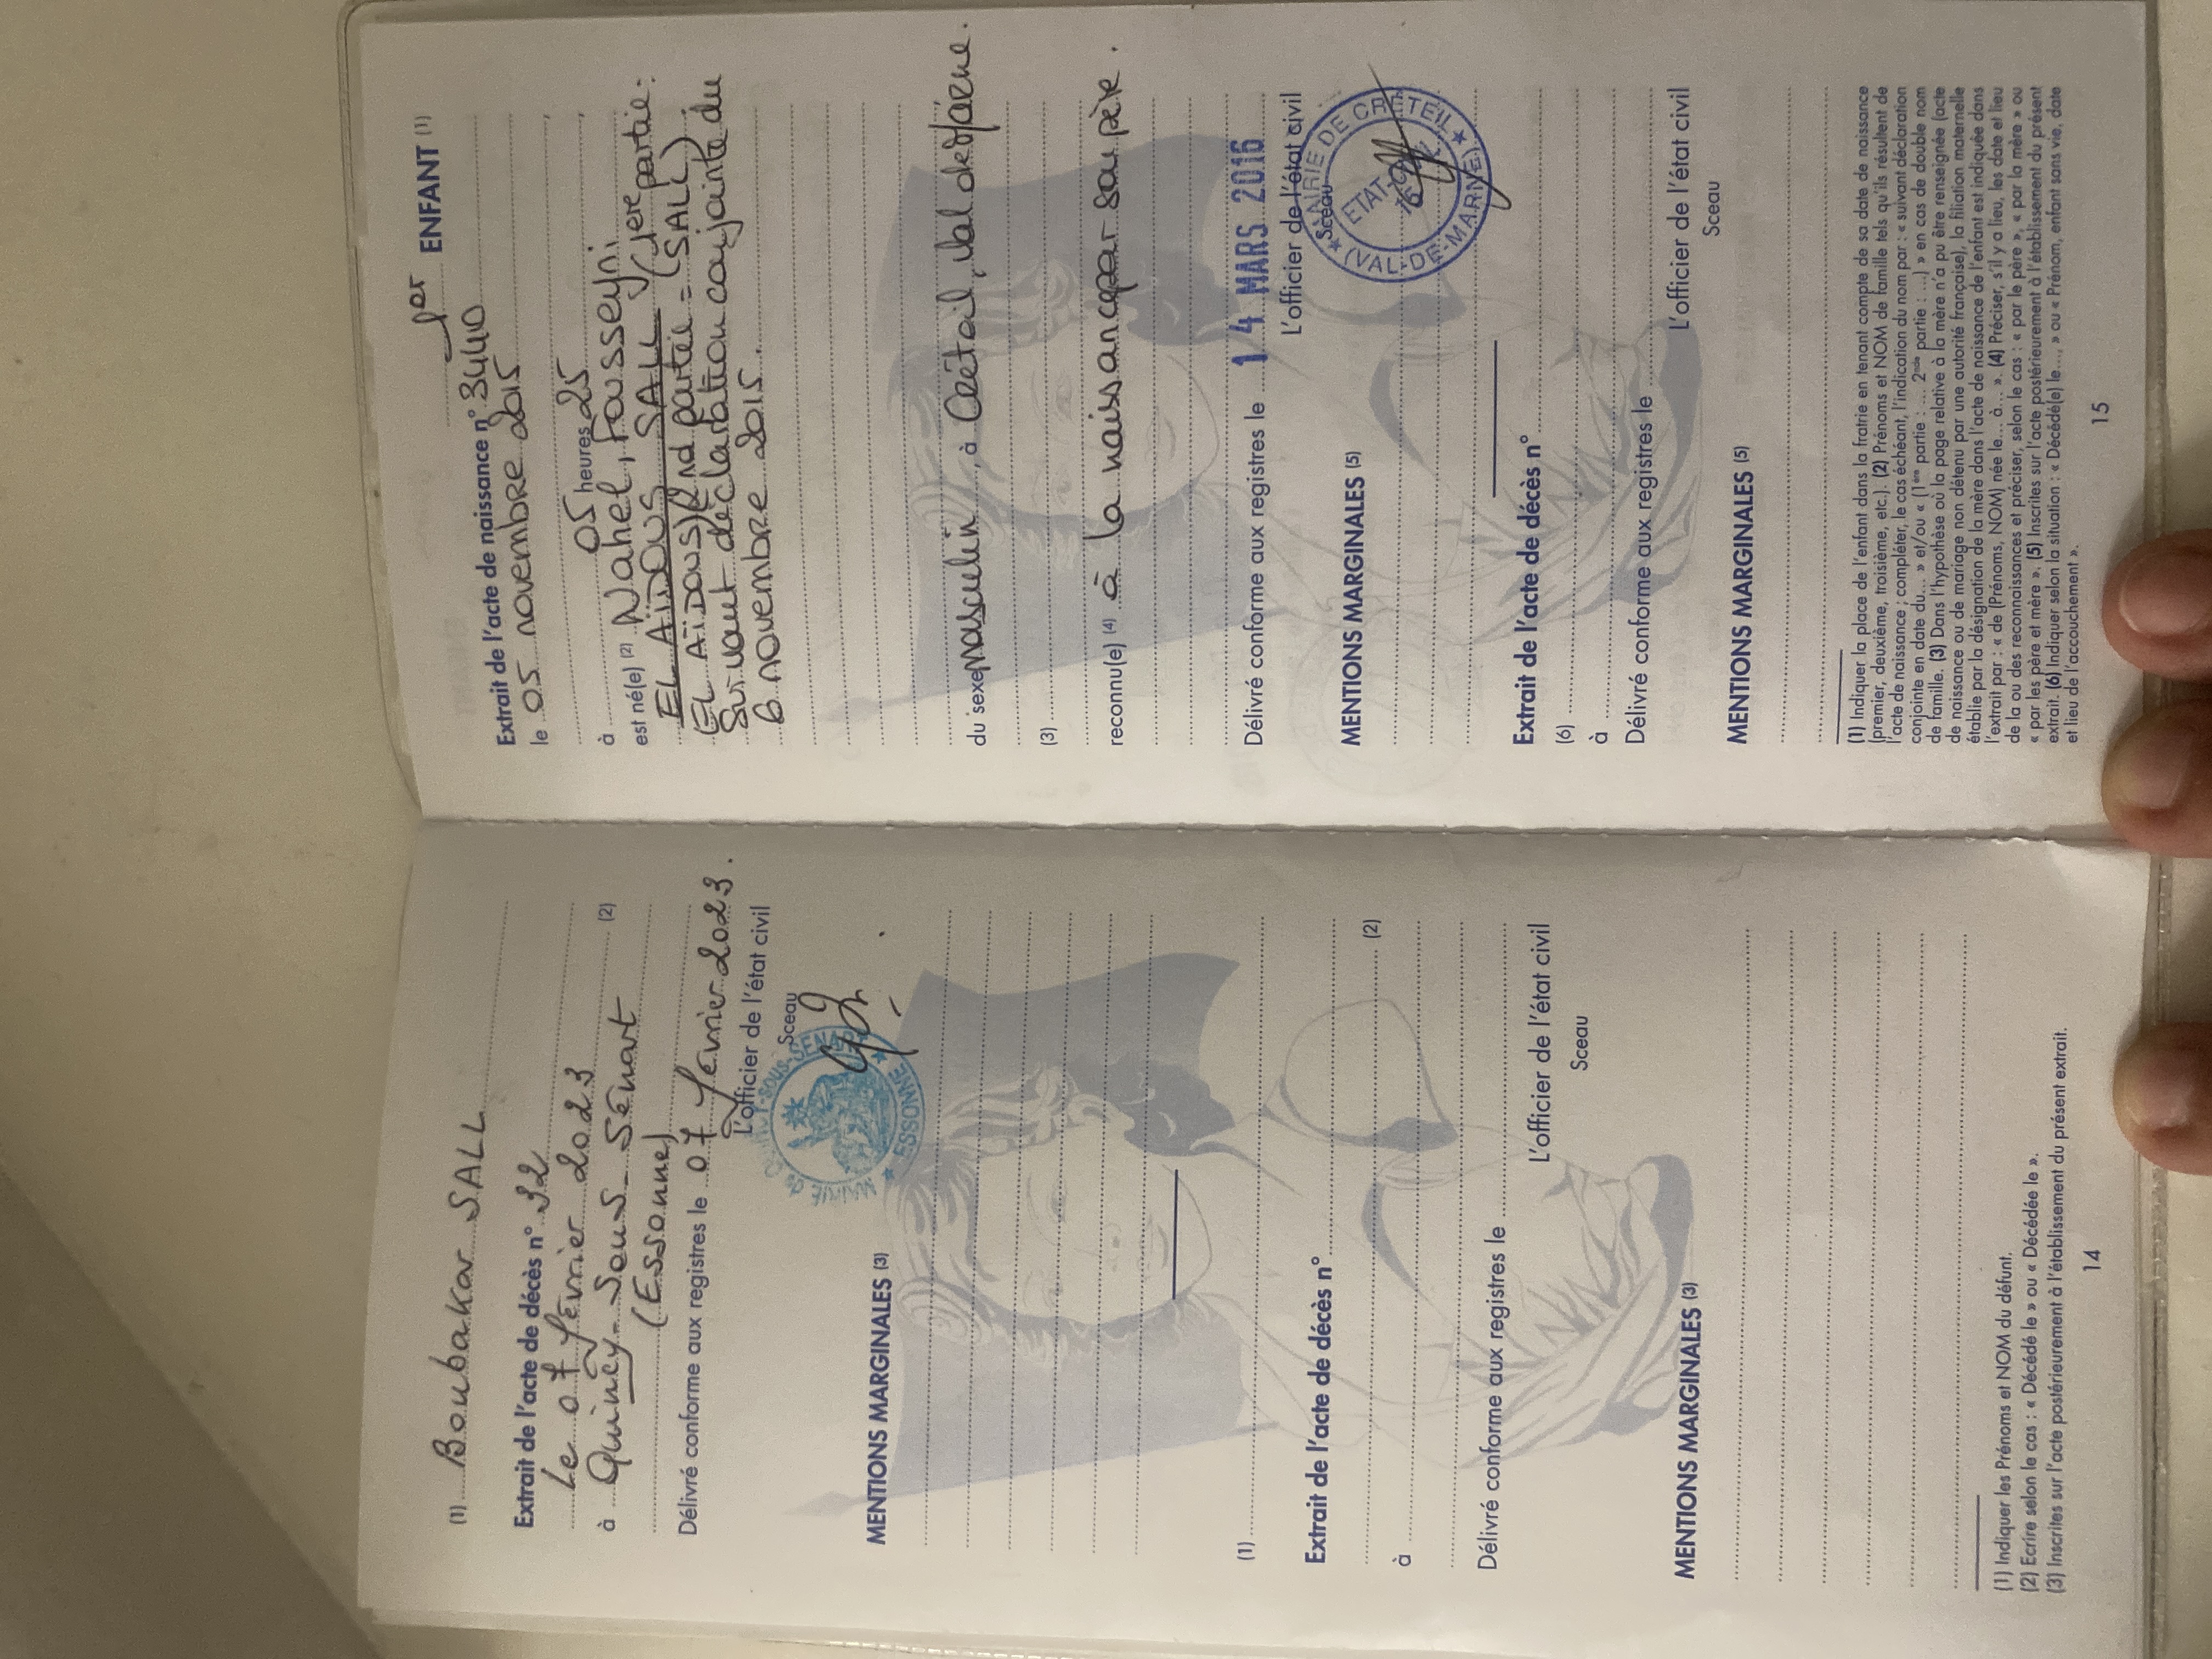 (1) Boubakar SALL
Extrait de l'acte de décès n° 32
Le 07 février 2023
à Quincy-Sous-Sénart (2)
(Essonne)
Délivré conforme aux registres le 07 février 2023.
L'officier de l'état civil
Sceau
ESSONNE
MENTIONS MARGINALES (3)
(1)
Extrait de l'acte de décès n°
à (2)
Délivré conforme aux registres le
L'officier de l'état civil
Sceau
MENTIONS MARGINALES (3)
(1) Indiquer les Prénoms et NOM du défunt.
(2) Ecrire selon le cas : « Décédé le » ou « Décédée le ».
(3) Inscrites sur l'acte postérieurement à l'établissement du présent extrait.
14
1er ENFANT (1)
Extrait de l'acte de naissance n° 3440
le 05 novembre 2015
à 05 heures 25
est né(e) (2) Nahel, Fousseyni
EL AÏDOUS SALL (1ere partie:
EL AÏDOUS) (2nd partie = SALL)
Suivant déclaration conjointe du
6 novembre 2015.
du sexe masculin, à Créteil, Val de Marne.
(3)
reconnu(e) (4) à la naissance par son père.
Délivré conforme aux registres le 14 MARS 2016
L'officier de l'état civil
Sceau
MAIRIE DE CRÉTEIL
(VAL-DE-MARNE)
MENTIONS MARGINALES (5)
Extrait de l'acte de décès n°
(6)
à
Délivré conforme aux registres le
L'officier de l'état civil
Sceau
MENTIONS MARGINALES (5)
(1) Indiquer la place de l'enfant dans la fratrie en tenant compte de sa date de naissance
(premier, deuxième, troisième, etc.). (2) Prénoms et NOM de famille tels qu'ils résultent de
l'acte de naissance ; compléter, le cas échéant, l'indication du nom par : « suivant déclaration
conjointe en date du... » et/ou « (1ère partie : ... 2nde partie : ...) » en cas de double nom
de famille. (3) Dans l'hypothèse où la page relative à la mère n'a pu être renseignée (acte
de naissance ou de mariage non détenu par une autorité française), la filiation maternelle
établie par la désignation de la mère dans l'acte de naissance de l'enfant est indiquée dans
l'extrait par : « de (Prénoms, NOM) née le... à... ». (4) Préciser, s'il y a lieu, les date et lieu
de la ou des reconnaissances et préciser, selon le cas : « par le père », « par la mère » ou
« par les père et mère ». (5) Inscrites sur l'acte postérieurement à l'établissement du présent
extrait. (6) Indiquer selon la situation : « Décédé(e) le... » ou « Prénom, enfant sans vie, date
et lieu de l'accouchement ».
15